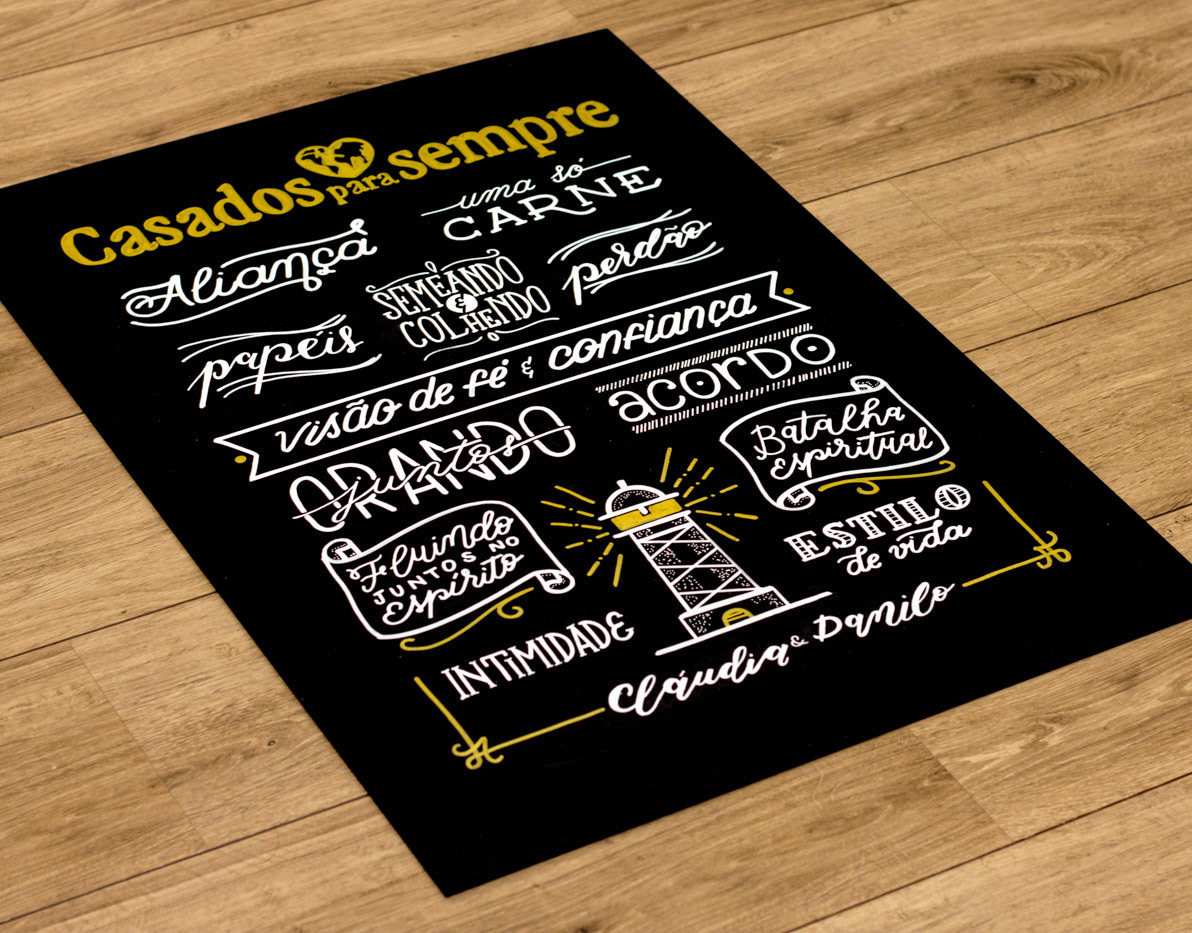 Casados para sempre
uma só
CARNE
Aliança
SEMEANDO
&
COLHENDO
perdão
papéis
visão de fé & confiança
acordo
ORANDO
juntos
Batalha
Espiritual
Fluindo
JUNTOS NO
Espírito
ESTILO
de vida
INTIMIDADE
Cláudia & Danilo